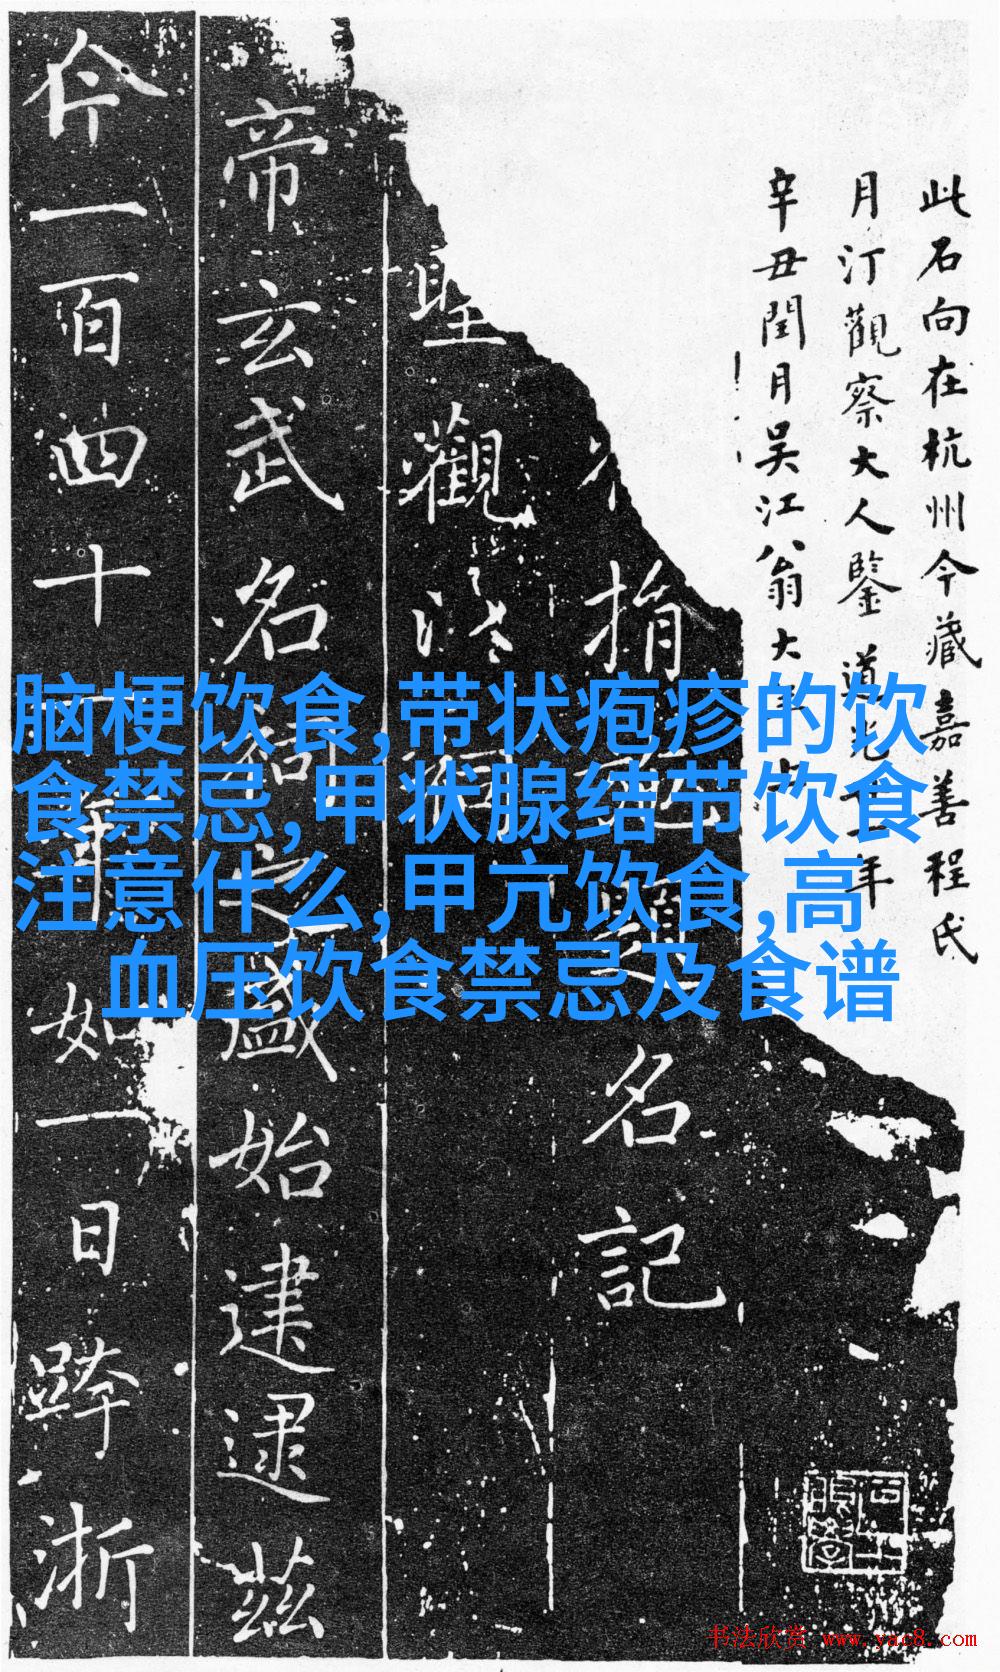 此石向在杭州今藏嘉善程氏
月汀觀察大人鑒道光
年
辛丑閏月吳江翁大
捐
題名記
聖觀
帝玄武名
之盛始建逮茲
仐一百四十
如一日跨浙
脑梗饮食,带状疱疹的饮
食禁忌,甲状腺结节饮食
注意什么,甲亢饮食,高
血压饮食禁忌及食谱
书法欣赏 www.yac8.com